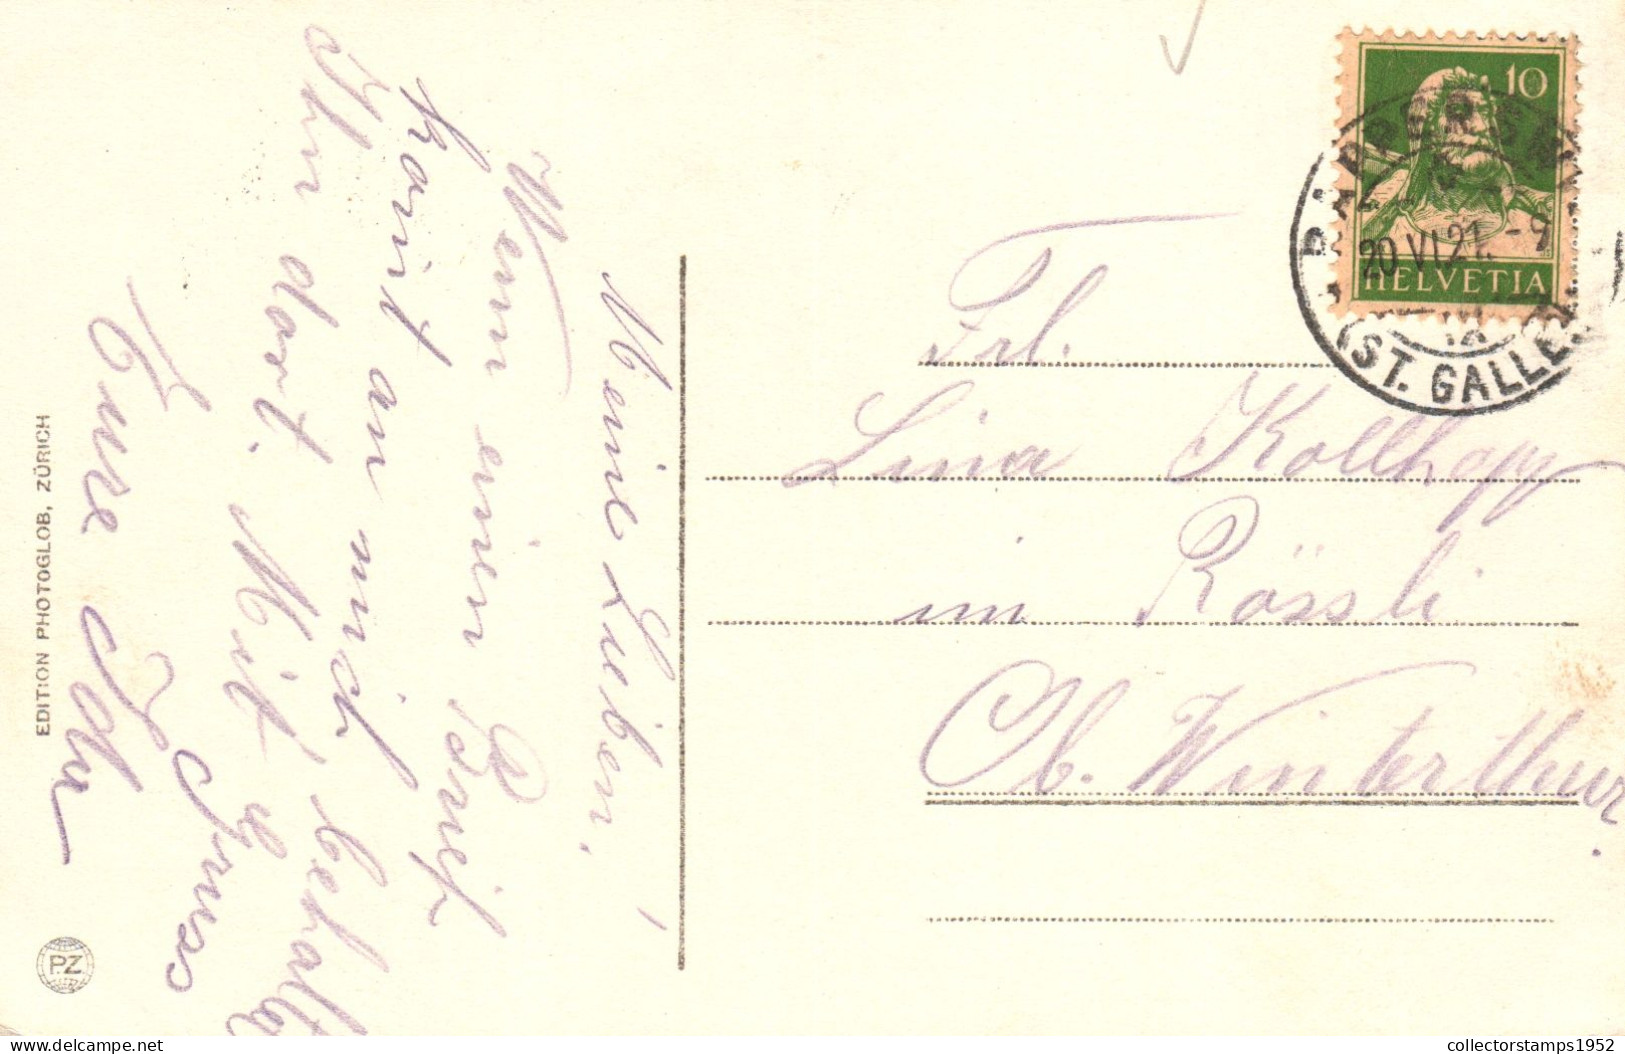 Meine Lieben!
Wenn einen Brief
komt an mich
Ihn dort. Mit behalten
Gruss
Eure Ida
EDITION PHOTOGLOB, ZÜRICH
PZ
10
HELVETIA
RAPPERSWIL
20.VI.21.-9
IX
(ST. GALLEN)
Frl.
Lina Kollhopp
im Rössli
Ob. Winterthur.
delcampe.net
collectorstamps1952